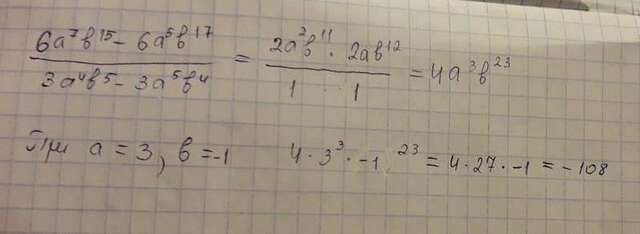 6a⁷b¹⁵ - 6a⁵b¹⁷ / 3a⁴b⁵ - 3a⁵b⁴ = 2a²b¹¹ · 2ab¹² / 1 · 1 = 4a³b²³
При a = 3, b = -1 4 · 3³ · -1²³ = 4 · 27 · -1 = -108